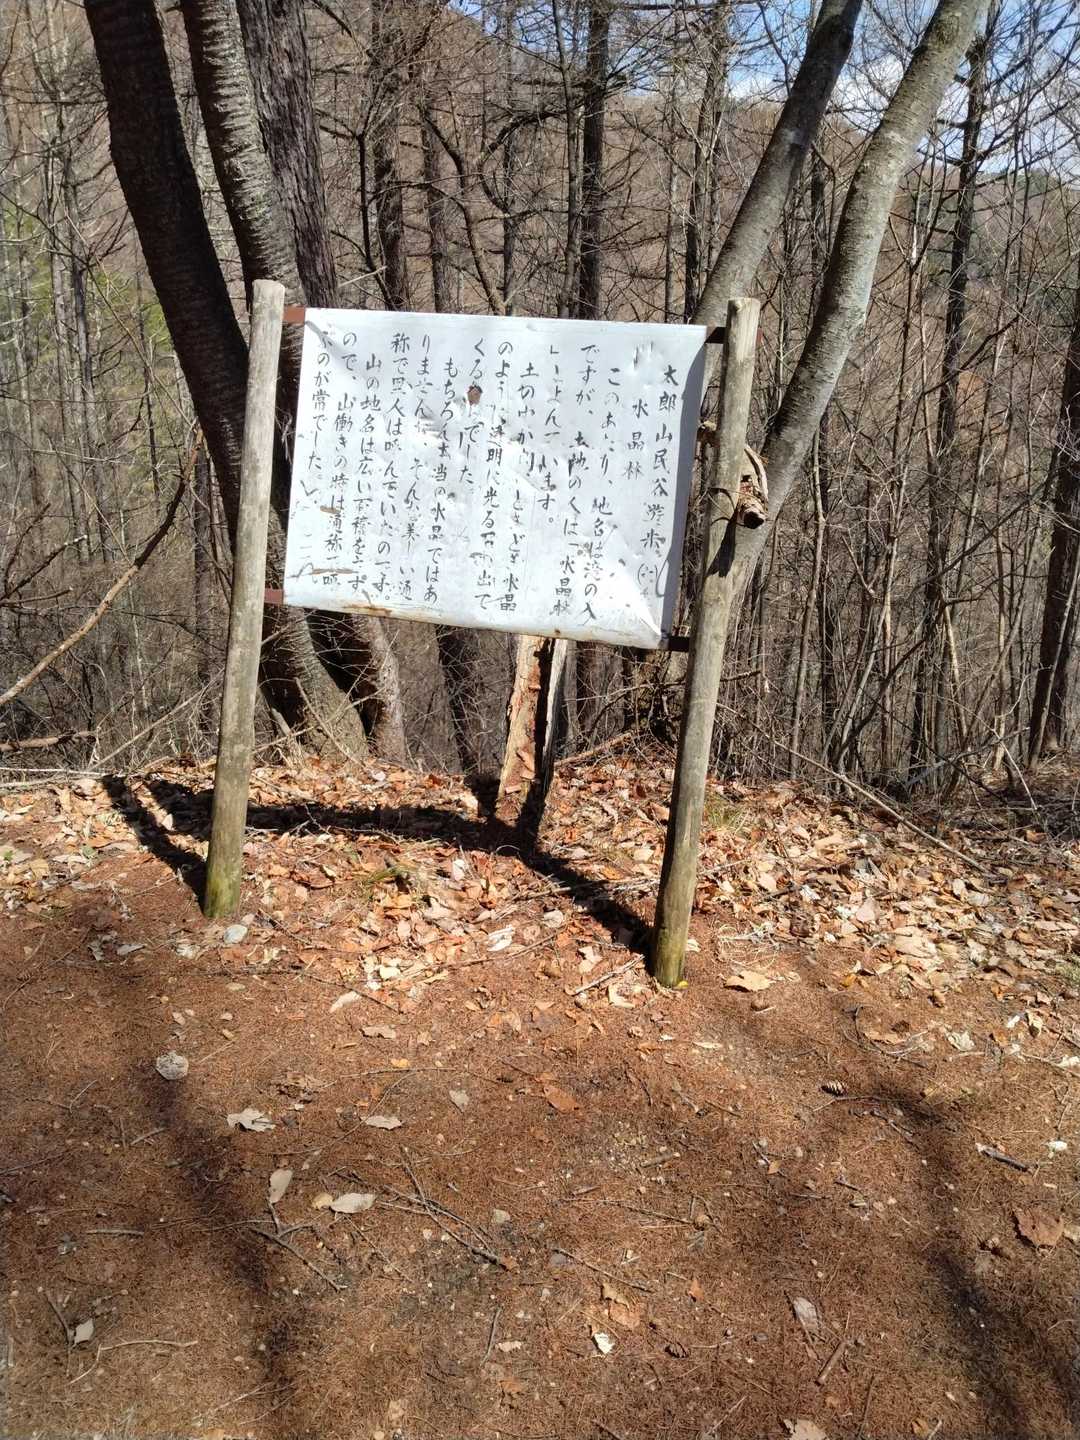 太郎山民谷遊歩
水晶林
このあたり、地名は滝の入
ですが、土地のくは水晶林
といいます。
土の中から、ときどき水晶
のように透明に光る石が出て
くるでした。
もちろん本当の水晶ではあ
りませんが、そんな美しい通
称で里人は呼んでいたのです。
山の地名は広い面積を示す
ので、山働きの時は通称で呼
ぶのが常でした。